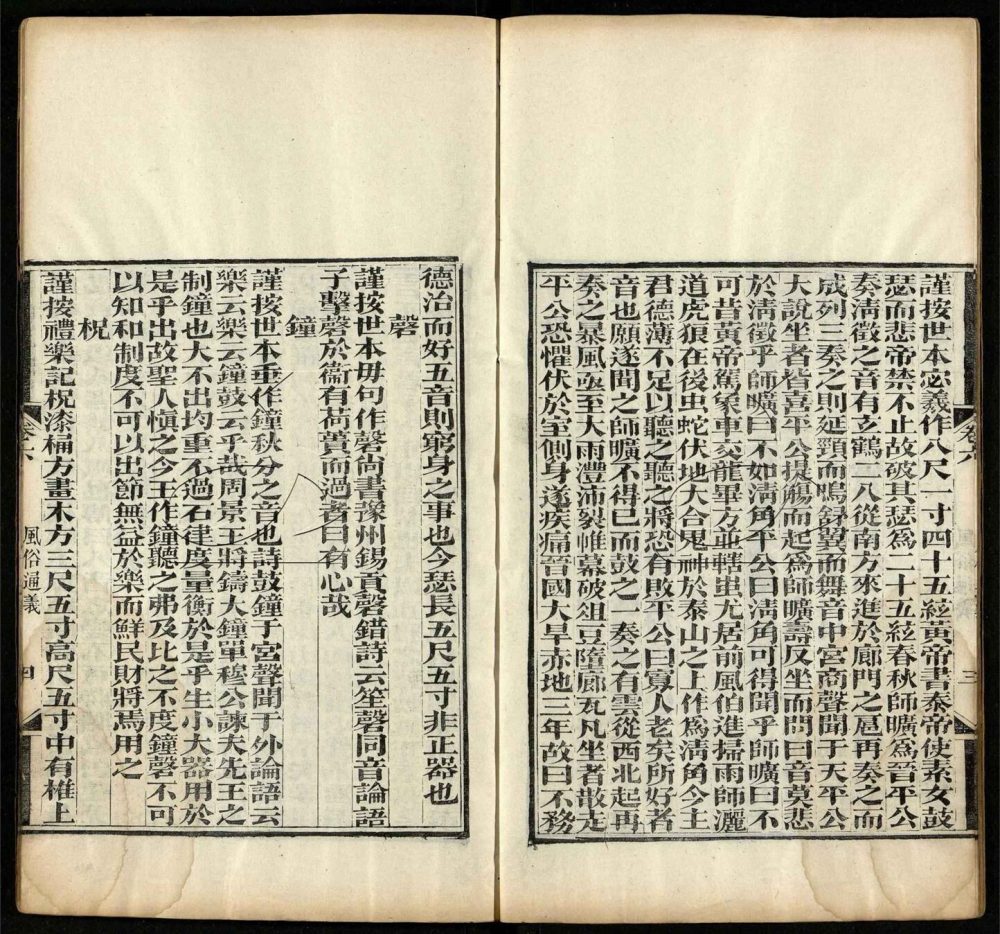 謹按世本宓羲作八尺一寸四十五絃黃帝書泰帝使素女鼓
瑟而悲帝禁不止故破其瑟爲二十五絃春秋師曠爲晉平公
奏淸徵之音有玄鶴二八從南方來進於廊門之扈再奏之而
成列三奏之則延頸而鳴舒翼而舞音中宮商聲聞于天平公
大說坐者皆喜平公提觴而起爲師曠壽反坐而問曰音莫悲
於淸徵乎師曠曰不如淸角平公曰淸角可得聞乎師曠曰不
可昔黃帝駕象車交龍畢方並轄蚩尤居前風伯進掃雨師灑
道虎狼在後虫蛇伏地大合鬼神於泰山之上作爲淸角今主
君德薄不足以聽之聽之將恐有敗平公曰寡人老矣所好者
音也願遂聞之師曠不得已而鼓之一奏之有雲從西北起再
奏之暴風亟至大雨灃沛裂帷幕破俎豆墮廊瓦凡坐者散走
平公恐懼伏於室側身遂疾痛晉國大旱赤地三年故曰不務
卷六
三
德治而好五音則窮身之事也今瑟長五尺五寸非正器也
磬
謹按世本毋句作磬尚書豫州錫貢磬錯詩云笙磬同音論語
子擊磬於衞有荷蕢而過者曰有心哉
鐘
謹按世本垂作鐘秋分之音也詩鼓鐘于宮聲聞于外論語云
樂云樂云鐘鼓云乎哉周景王將鑄大鐘單穆公諫夫先王之
制鐘也大不出均重不過石律度量衡於是乎生小大器用於
是乎出故聖人愼之今王作鐘聽之弗及比之不度鐘磬不可
以知和制度不可以出節無益於樂而鮮民財將焉用之
柷
謹按禮樂記柷漆桶方畫木方三尺五寸高尺五寸中有椎上
卷六
風俗通義
四